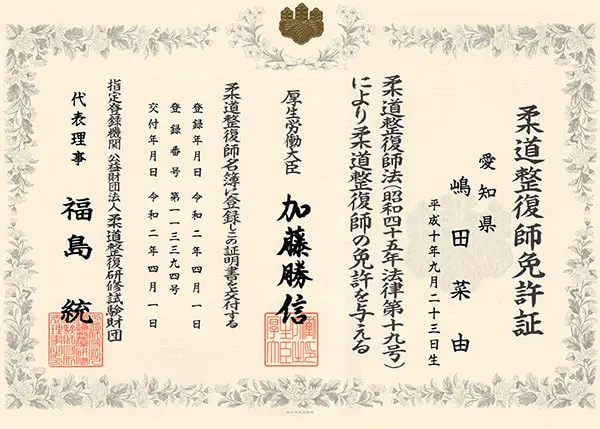 柔道整復師免許証
愛知県
嶋田菜由
平成十年九月二十三日生
柔道整復師法(昭和四十五年法律第十九号)
により柔道整復師の免許を与える
厚生労働大臣
加藤勝信
柔道整復師名簿に登録しこの証明書を交付する
登録年月日 令和二年四月一日
登録番号 第一一三三九四号
交付年月日 令和二年四月一日
指定登録機関 公益財団法人柔道整復研修試験財団
代表理事
福島統